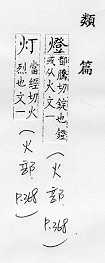 類篇
燈 都騰切錠也鐙或从火文一 (火部 P.368)
灯 當經切火烈也文一 (火部 P.368)